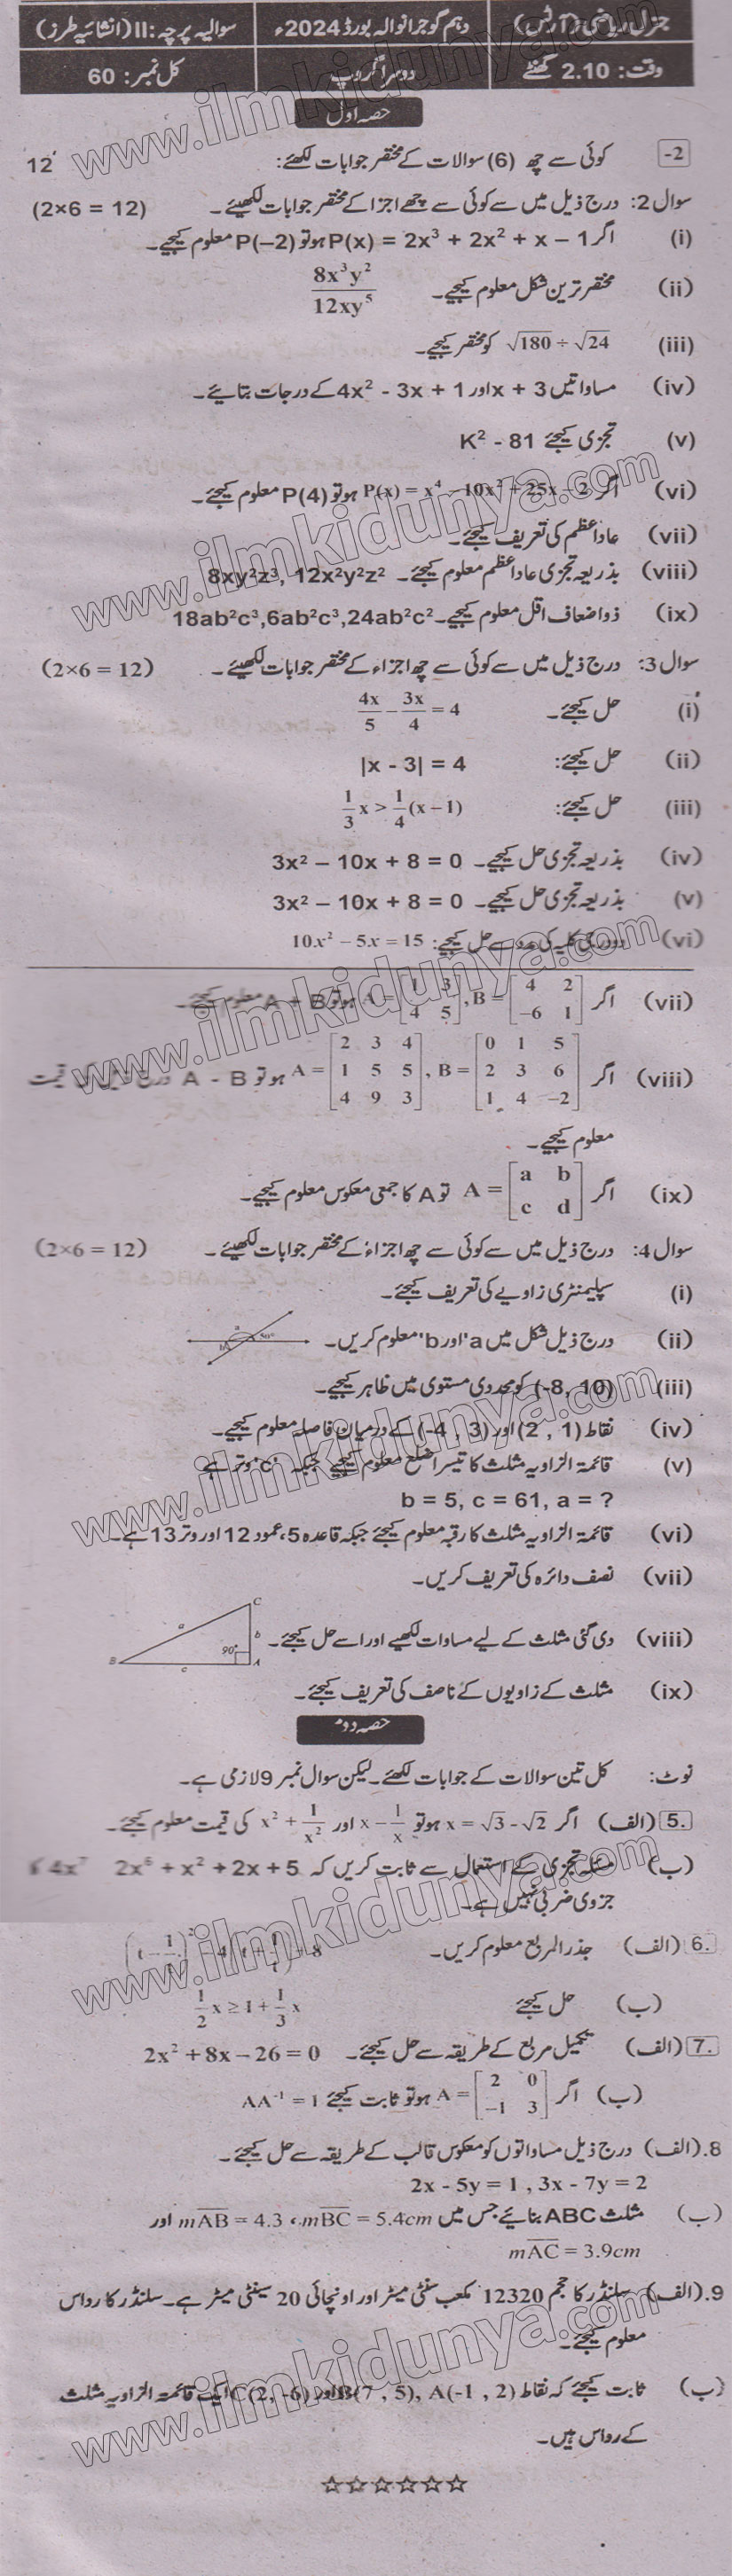 جنرل ریاضی (آرٹس) دہم گوجرانوالہ بورڈ 2024ء سوالیہ پرچہ: II (انشائیہ طرز)
وقت: 2.10 گھنٹے دوسرا گروپ کل نمبر: 60
حصہ اول
2- کوئی سے چھ (6) سوالات کے مختصر جوابات لکھئے: 12
سوال 2: درج ذیل میں سے کوئی سے چھے اجزا کے مختصر جوابات لکھیئے۔ (2×6 = 12)
(i) اگر P(x) = 2x³ + 2x² + x – 1 ہو تو P(–2) معلوم کیجیے۔
(ii) مختصر ترین شکل معلوم کیجیے۔ 8x³y² / 12xy⁵
(iii) √180 ÷ √24 کو مختصر کیجیے۔
(iv) مساواتیں x + 3 اور 4x² - 3x + 1 کے درجات بتائیے۔
(v) تجزی کیجئے K² - 81
(vi) اگر P(x) = x⁴ – 10x² + 25x – 2 ہو تو P(4) معلوم کیجئے۔
(vii) عاد اعظم کی تعریف کیجئے۔
(viii) بذریعہ تجزی عاد اعظم معلوم کیجئے۔ 8xy²z³, 12x²y²z²
(ix) ذواضعاف اقل معلوم کیجیے۔ 18ab²c³,6ab²c³,24ab²c²
سوال 3: درج ذیل میں سے کوئی سے چھ اجزاء کے مختصر جوابات لکھیئے۔ (2×6 = 12)
(i) حل کیجئے۔ 4x/5 – 3x/4 = 4
(ii) حل کیجئے: |x - 3| = 4
(iii) حل کیجئے: 1/3 x > 1/4 (x – 1)
(iv) بذریعہ تجزی حل کیجیے۔ 3x² – 10x + 8 = 0
(v) بذریعہ تجزی حل کیجیے۔ 3x² – 10x + 8 = 0
(vi) دودرجی کلیہ کی مدد سے حل کیجئے: 10x² – 5x = 15
(vii) اگر A = [1 3; 4 5], B = [4 2; –6 1] ہو تو A + B معلوم کیجئے۔
(viii) اگر A = [2 3 4; 1 5 5; 4 9 3], B = [0 1 5; 2 3 6; 1 4 –2] ہو تو A - B درج ذیل کی قیمت
معلوم کیجیے۔
(ix) اگر A = [a b; c d] تو A کا جمعی معکوس معلوم کیجیے۔
سوال 4: درج ذیل میں سے کوئی سے چھ اجزاء کے مختصر جوابات لکھیئے۔ (2×6 = 12)
(i) سپلیمنٹری زاویے کی تعریف کیجئے۔
(ii) درج ذیل شکل میں 'a' اور 'b' معلوم کریں۔
a 50° b
(iii) (-8, 10) کو محددی مستوی میں ظاہر کیجئے۔
(iv) نقاط (2 , 1) اور (-4 , 3) کے درمیان فاصلہ معلوم کیجیے۔
(v) قائمۃ الزاویہ مثلث کا تیسرا ضلع معلوم کیجیے جبکہ 'c' وتر ہے
b = 5, c = 61, a = ?
(vi) قائمۃ الزاویہ مثلث کا رقبہ معلوم کیجئے جبکہ قاعدہ 5، عمود 12 اور وتر 13 ہے۔
(vii) نصف دائرہ کی تعریف کریں۔
(viii) دی گئی مثلث کے لیے مساوات لکھیے اور اسے حل کیجئے۔
C a b 90° B c A
(ix) مثلث کے زاویوں کے ناصف کی تعریف کیجئے۔
حصہ دوم
نوٹ: کل تین سوالات کے جوابات لکھئے۔ لیکن سوال نمبر 9 لازمی ہے۔
5. (الف) اگر x = √3 - √2 ہو تو x – 1/x اور x² + 1/x² کی قیمت معلوم کیجئے۔
(ب) مسئلہ تجزی کے استعمال سے ثابت کریں کہ 2x⁶ + x² + 2x + 5 4x⁷
جزوی ضربی نہیں ہے۔
6. (الف) جذر المربع معلوم کریں۔
(ب) حل کیجئے 1/2 x ≥ 1 + 1/3 x
7. (الف) تکمیل مربع کے طریقہ سے حل کیجئے۔ 2x² + 8x – 26 = 0
(ب) اگر A = [2 0; –1 3] ہو تو ثابت کیجئے AA⁻¹ = 1
8. (الف) درج ذیل مساواتوں کو معکوس قالب کے طریقہ سے حل کیجئے۔
2x - 5y = 1 , 3x - 7y = 2
(ب) مثلث ABC بنائیے جس میں mBC = 5.4cm، mAB = 4.3 اور
mAC = 3.9cm
9. (الف) سلنڈر کا حجم 12320 مکعب سنٹی میٹر اور اونچائی 20 سینٹی میٹر ہے۔ سلنڈر کا رداس
معلوم کیجئے۔
(ب) ثابت کیجئے کہ نقاط A(-1 , 2) ,B(7 , 5) اور C(2, -6) ایک قائمۃ الزاویہ مثلث
کے رواس ہیں۔
☆☆☆☆☆☆
www.ilmkidunya.com
www.ilmkidunya.com
www.ilmkidunya.com
www.ilmkidunya.com
www.ilmkidunya.com
www.ilmkidunya.com